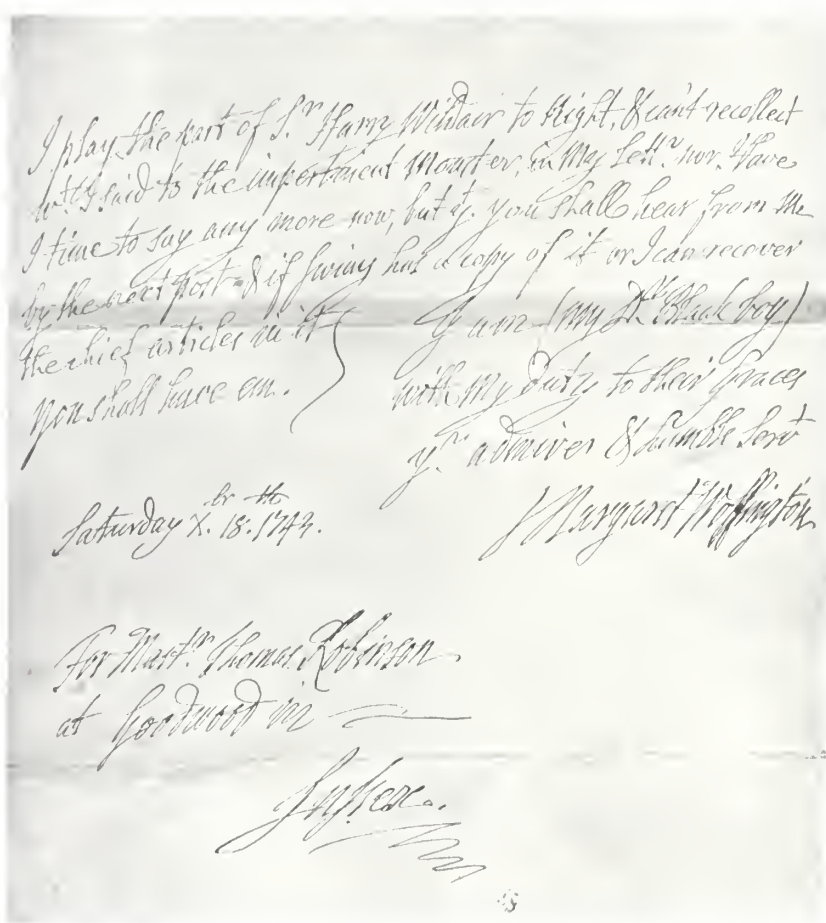 I play the part of S.r Harry Wildair to Night, & can't recollect
w.t I said to the impertinent Monster, in May Lett.r nor Have
I time to say any more now, but y.t you shall hear from me
by the next post & if Swiny has a copy of it or I can recover
the chief articles in it
you shall have em.
I am (my D.r Black boy)
with my Duty to their Graces
y.r admirer & humble Serv.t
Margaret Woffington
Saturday X.br 18.th 1743.
For Mast.r Thomas Robinson
at Goodwood in
Sussex.